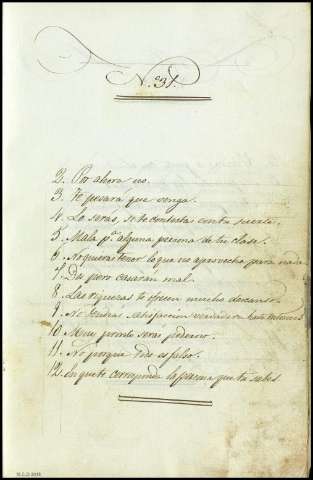 N.º 31.
2. Por ahora no.
3. Te pesará que venga.
4. Lo serás, si te contentas con tu suerte.
5. Mala p.ª alguna persona de tu clase.
6. No quieras tener lo que no aprovecha para nada
7. Dos pero casarán mal.
8. Las riquezas te ofrecen mucho descanso.
9. No tendras satisfaccion verdadera hasta entonces
10. Muy pronto serás poderoso.
11. No porque todo es falso.
12. En que te corresponde la persona que tú sabes